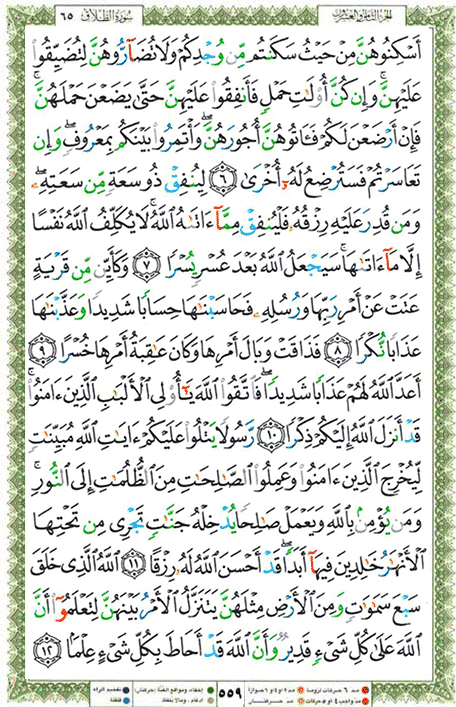 الجزء الثامن والعشرون
سورة الطلاق ٦٥
أَسْكِنُوهُنَّ مِنْ حَيْثُ سَكَنتُم مِّن وُجْدِكُمْ وَلَا تُضَآرُّوهُنَّ لِتُضَيِّقُوا۟
عَلَيْهِنَّ ۚ وَإِن كُنَّ أُو۟لَـٰتِ حَمْلٍ فَأَنفِقُوا۟ عَلَيْهِنَّ حَتَّىٰ يَضَعْنَ حَمْلَهُنَّ ۚ
فَإِنْ أَرْضَعْنَ لَكُمْ فَـَٔاتُوهُنَّ أُجُورَهُنَّ ۖ وَأْتَمِرُوا۟ بَيْنَكُم بِمَعْرُوفٍ ۖ وَإِن
تَعَاسَرْتُمْ فَسَتُرْضِعُ لَهُۥٓ أُخْرَىٰ ٦ لِيُنفِقْ ذُو سَعَةٍ مِّن سَعَتِهِۦ ۖ
وَمَن قُدِرَ عَلَيْهِ رِزْقُهُۥ فَلْيُنفِقْ مِمَّآ ءَاتَىٰهُ ٱللَّهُ ۚ لَا يُكَلِّفُ ٱللَّهُ نَفْسًا
إِلَّا مَآ ءَاتَىٰهَا ۚ سَيَجْعَلُ ٱللَّهُ بَعْدَ عُسْرٍ يُسْرًا ٧ وَكَأَيِّن مِّن قَرْيَةٍ
عَتَتْ عَنْ أَمْرِ رَبِّهَا وَرُسُلِهِۦ فَحَاسَبْنَـٰهَا حِسَابًا شَدِيدًا وَعَذَّبْنَـٰهَا
عَذَابًا نُّكْرًا ٨ فَذَاقَتْ وَبَالَ أَمْرِهَا وَكَانَ عَـٰقِبَةُ أَمْرِهَا خُسْرًا ٩
أَعَدَّ ٱللَّهُ لَهُمْ عَذَابًا شَدِيدًا ۖ فَٱتَّقُوا۟ ٱللَّهَ يَـٰٓأُو۟لِى ٱلْأَلْبَـٰبِ ٱلَّذِينَ ءَامَنُوا۟ ۚ
قَدْ أَنزَلَ ٱللَّهُ إِلَيْكُمْ ذِكْرًا ١٠ رَّسُولًا يَتْلُوا۟ عَلَيْكُمْ ءَايَـٰتِ ٱللَّهِ مُبَيِّنَـٰتٍ
لِّيُخْرِجَ ٱلَّذِينَ ءَامَنُوا۟ وَعَمِلُوا۟ ٱلصَّـٰلِحَـٰتِ مِنَ ٱلظُّلُمَـٰتِ إِلَى ٱلنُّورِ ۚ
وَمَن يُؤْمِنۢ بِٱللَّهِ وَيَعْمَلْ صَـٰلِحًا يُدْخِلْهُ جَنَّـٰتٍ تَجْرِى مِن تَحْتِهَا
ٱلْأَنْهَـٰرُ خَـٰلِدِينَ فِيهَآ أَبَدًا ۖ قَدْ أَحْسَنَ ٱللَّهُ لَهُۥ رِزْقًا ١١ ٱللَّهُ ٱلَّذِى خَلَقَ
سَبْعَ سَمَـٰوَٰتٍ وَمِنَ ٱلْأَرْضِ مِثْلَهُنَّ يَتَنَزَّلُ ٱلْأَمْرُ بَيْنَهُنَّ لِتَعْلَمُوٓا۟ أَنَّ
ٱللَّهَ عَلَىٰ كُلِّ شَىْءٍ قَدِيرٌ وَأَنَّ ٱللَّهَ قَدْ أَحَاطَ بِكُلِّ شَىْءٍ عِلْمًۢا ١٢
٥٥٩